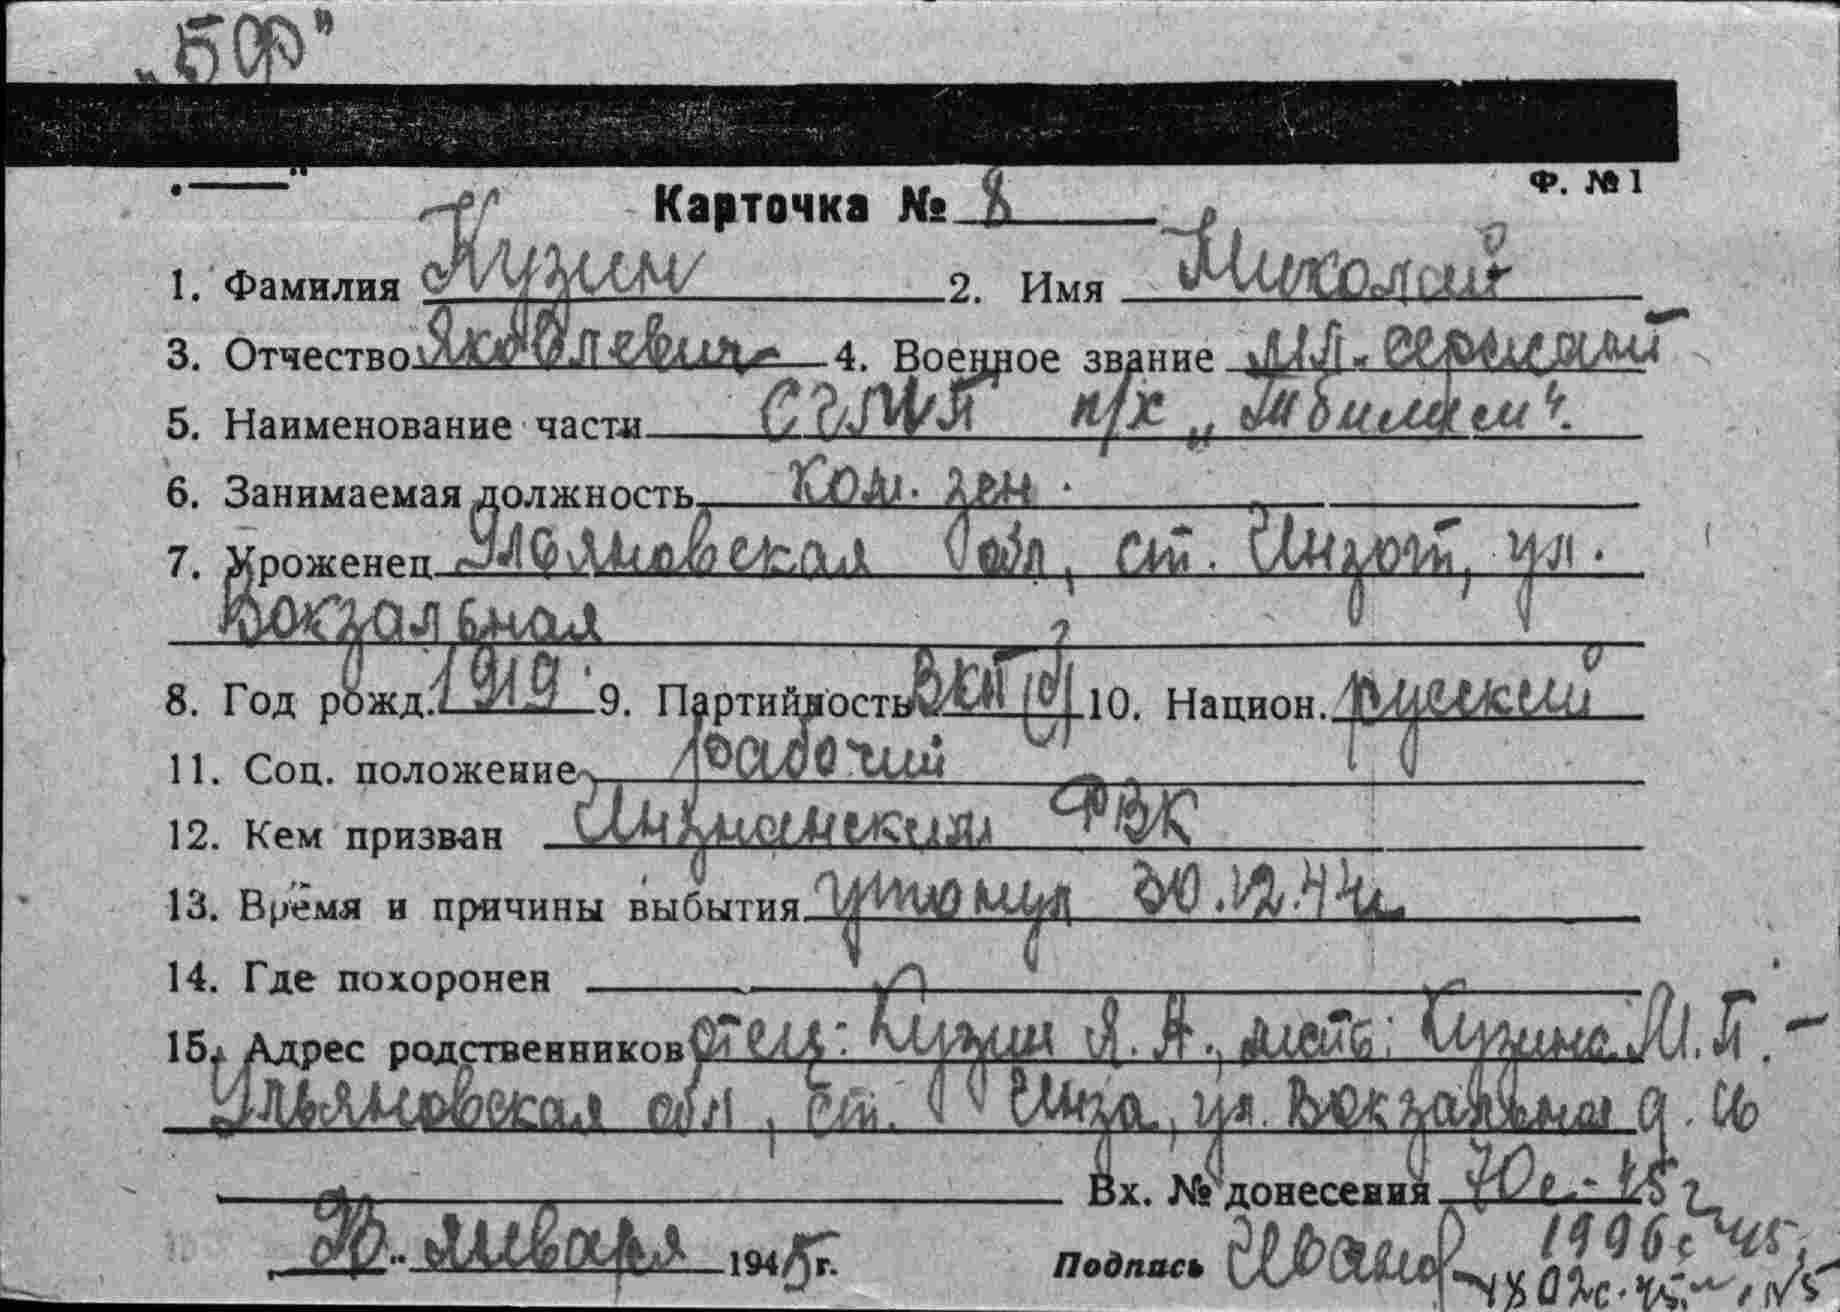 „БФ"
Ф. №1
Карточка № 8
1. Фамилия Кузин 2. Имя Николай
3. Отчество Яковлевич 4. Военное звание мл. сержант
5. Наименование части п/х „Тбилиси".
6. Занимаемая должность ком. зен.
7. Уроженец Ульяновская обл, ст. ул.
Вокзальная
8. Год рожд. 1919 9. Партийность ВКП(б) 10. Национ. русский
11. Соц. положение рабочий
12. Кем призван Инзнанским РВК
13. Время и причины выбытия утонул 30.12.44г.
14. Где похоронен
15. Адрес родственников отец: Кузин Я. А., мать: Кузина М. П. –
Ульяновская обл, ст. Инза, ул. Вокзальная д.
Вх. № донесения 70с.-45г
января 1945г.
Подпись Иванов 1996с 45,